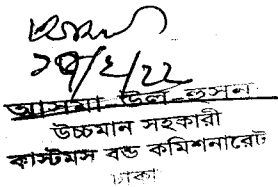 ১৭/২/২২
আসমা উল-হুসন
উচ্চমান সহকারী
কাস্টমস বন্ড কমিশনারেট
ঢাকা